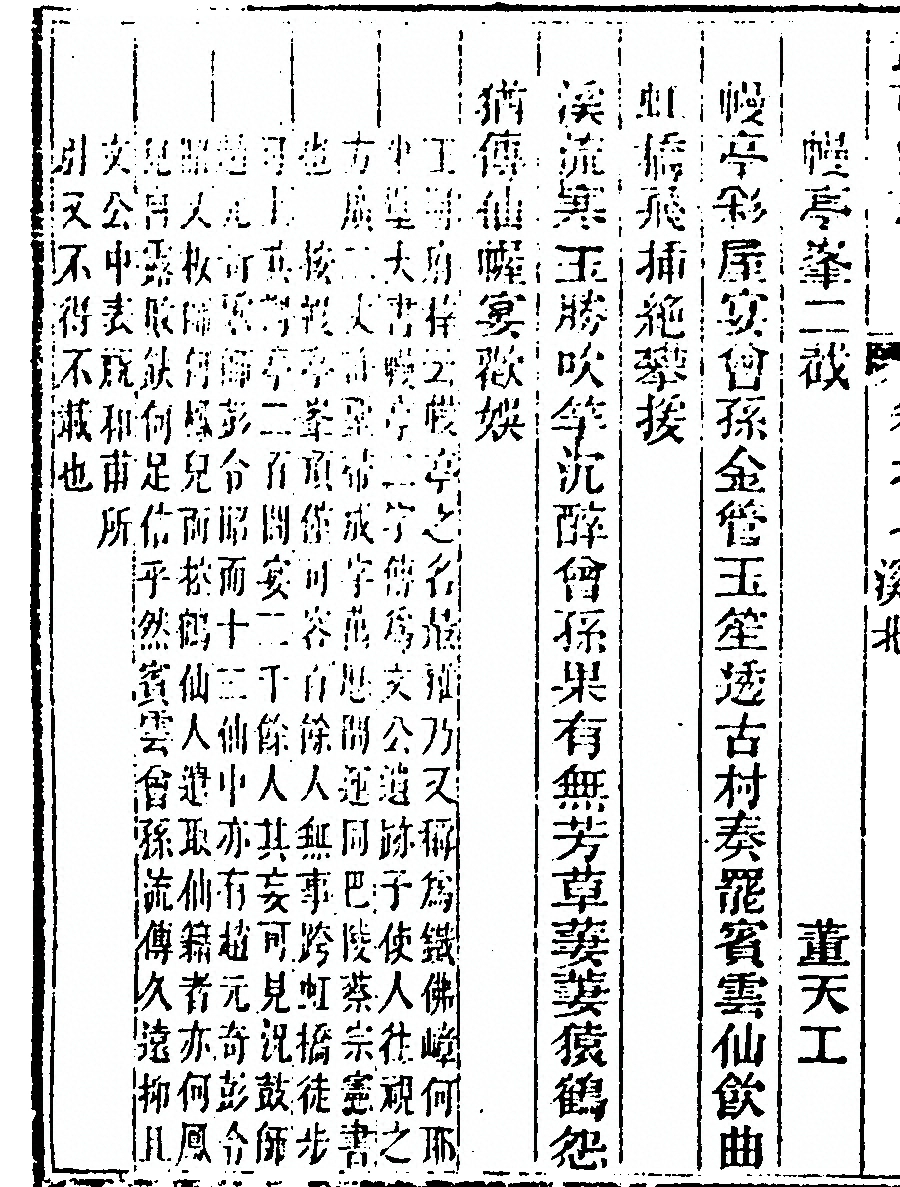 溪北
幔亭峯二截　董天工
幔亭彩屋宴曾孫金管玉笙透古村奏罷賓雲仙飲曲
虹橋飛插絶攀援
溪流寒玉勝吹竽沉醉曾孫果有無芳草萋萋猿鶴怨
猶傳仙幄宴歡娛
云幔亭之名雅乃又稱爲鐵佛嶂何耶
大書幔亭二字傳爲文公遺跡予使人往視之
方廣二丈成字萬厯間運同巴陵蔡宗憲書
也　按幔亭峯頂僅可容百餘人無事跨虹橋徒步
可上其亭二百間宴二千餘人其妄可見況鼓師
趙元奇師彭令昭而十三仙中亦有趙元奇彭令
昭又板師何鳳兒而控鶴仙人遣取仙籍者亦何鳳
兒露敗缺何足信乎然賓雲曾孫流傳久遠抑且
文公中表既和甫所
引又不得不載也